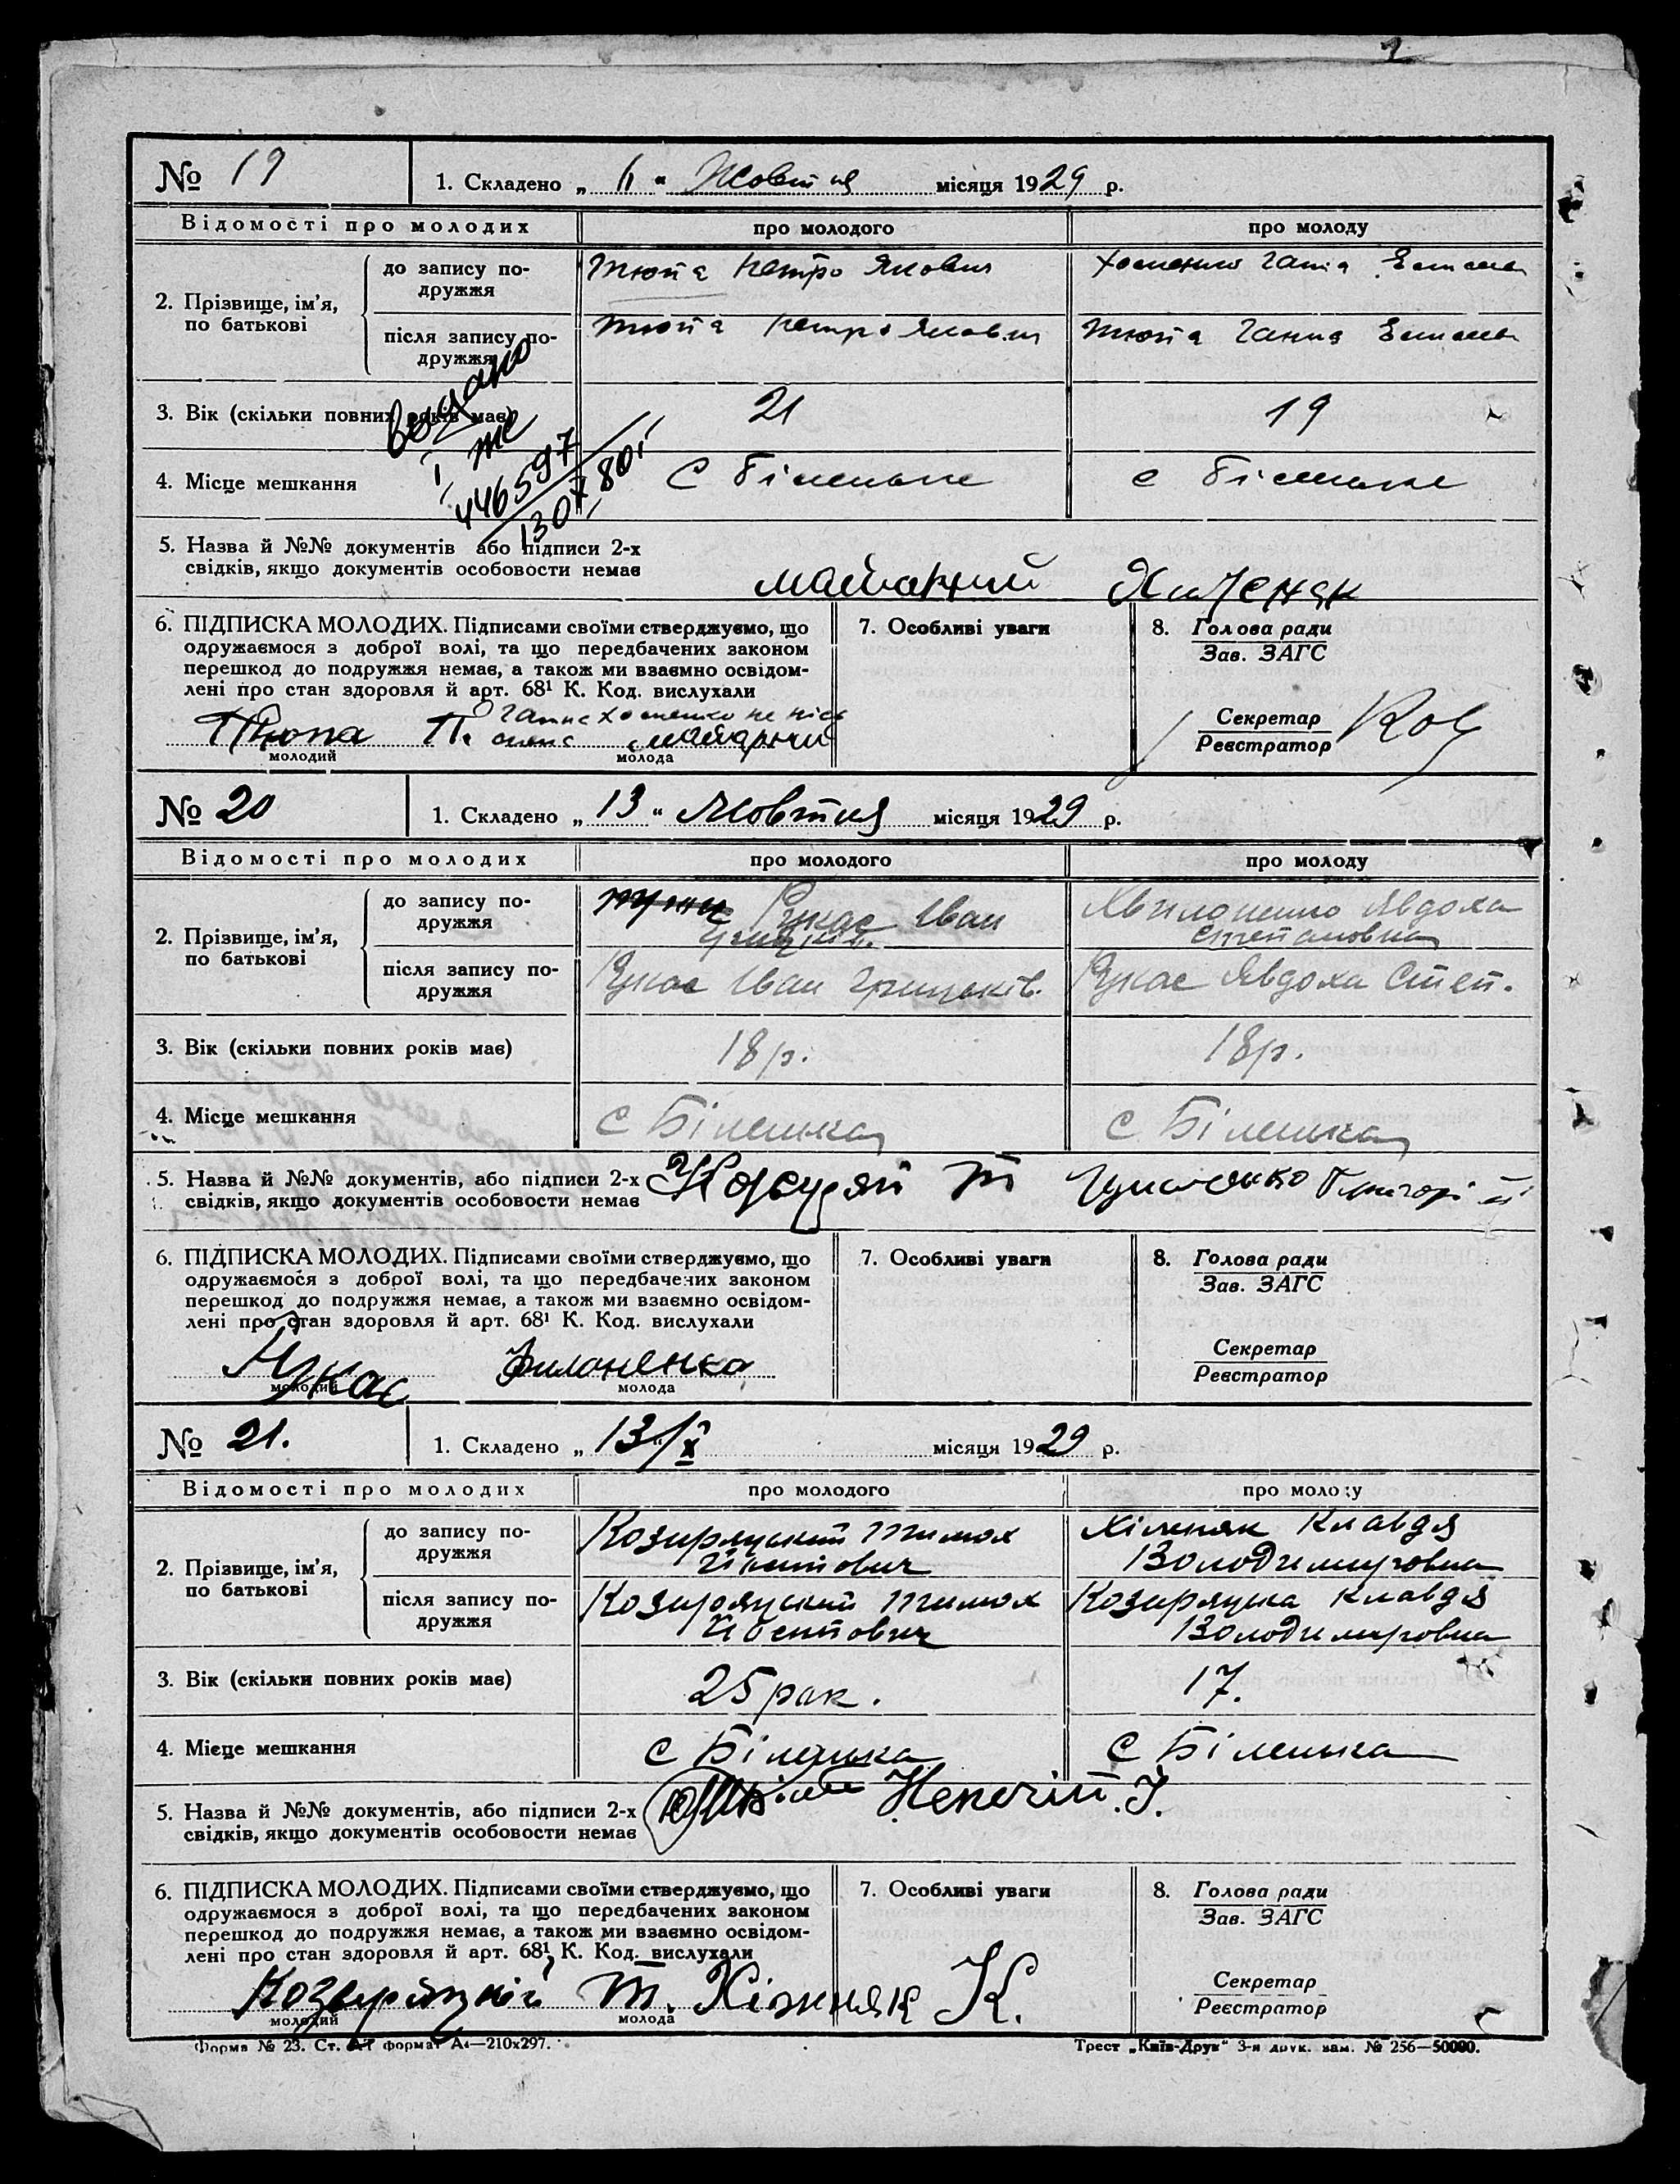 2
№ 19
1. Складено „ 11 “ Жовтня місяця 1929 р.
Відомості про молодих про молодого про молоду
2. Прізвище, ім'я, по батькові
до запису подружжя
Тюпа Петро Якович
Хоменко Ганна
після запису подружжя
Тюпа Петро Якович
Тюпа Ганна
3. Вік (скільки повних років має) 21 19
видано
446597
4. Місце мешкання с с
5. Назва й №№ документів або підписи 2-х
свідків, якщо документів особовости немає
6. ПІДПИСКА МОЛОДИХ. Підписами своїми стверджуємо, що
одружаємося з доброї волі, та що передбачених законом
перешкод до подружжя немає, а також ми взаємно освідом-
лені про стан здоровля й арт. 68¹ К. Код. вислухали
Тюпа П. Ганна Хоменко не
молодий молода
7. Особливі уваги
8. Голова ради
Зав. ЗАГС
Секретар
Реєстратор
№ 20
1. Складено „ 13 “ Жовтня місяця 1929 р.
Відомості про молодих про молодого про молоду
2. Прізвище, ім'я, по батькові
до запису подружжя
Рукас Іван
Явдоха
Степановна
після запису подружжя
Рукас Іван Грицьків.
Рукас Явдоха Степ.
3. Вік (скільки повних років має) 18 р. 18 р.
4. Місце мешкання с Біленька с Біленька
5. Назва й №№ документів, або підписи 2-х
свідків, якщо документів особовости немає
6. ПІДПИСКА МОЛОДИХ. Підписами своїми стверджуємо, що
одружаємося з доброї волі, та що передбачених законом
перешкод до подружжя немає, а також ми взаємно освідом-
лені про стан здоровля й арт. 68¹ К. Код. вислухали
Рукас Филоненко
молодий молода
7. Особливі уваги
8. Голова ради
Зав. ЗАГС
Секретар
Реєстратор
№ 21.
1. Складено „ 13/X “ місяця 1929 р.
Відомості про молодих про молодого про молоду
2. Прізвище, ім'я, по батькові
до запису подружжя
Козиряцький Тимох
Хіжняк Клавдя
Володимировна
після запису подружжя
Козиряцький Тимох
Козиряцка Клавдя
Володимировна
3. Вік (скільки повних років має) 25 рок. 17.
4. Місце мешкання с Біленька с Біленька
5. Назва й №№ документів, або підписи 2-х
свідків, якщо документів особовости немає
6. ПІДПИСКА МОЛОДИХ. Підписами своїми стверджуємо, що
одружаємося з доброї волі, та що передбачених законом
перешкод до подружжя немає, а також ми взаємно освідом-
лені про стан здоровля й арт. 68¹ К. Код. вислухали
Т. Хіжняк К.
молодий молода
7. Особливі уваги
8. Голова ради
Зав. ЗАГС
Секретар
Реєстратор
Форма № 23. Ст. формат А4—210х297.
Трест „Київ-Друк“ 3-я друк. зам. № 256—50000.